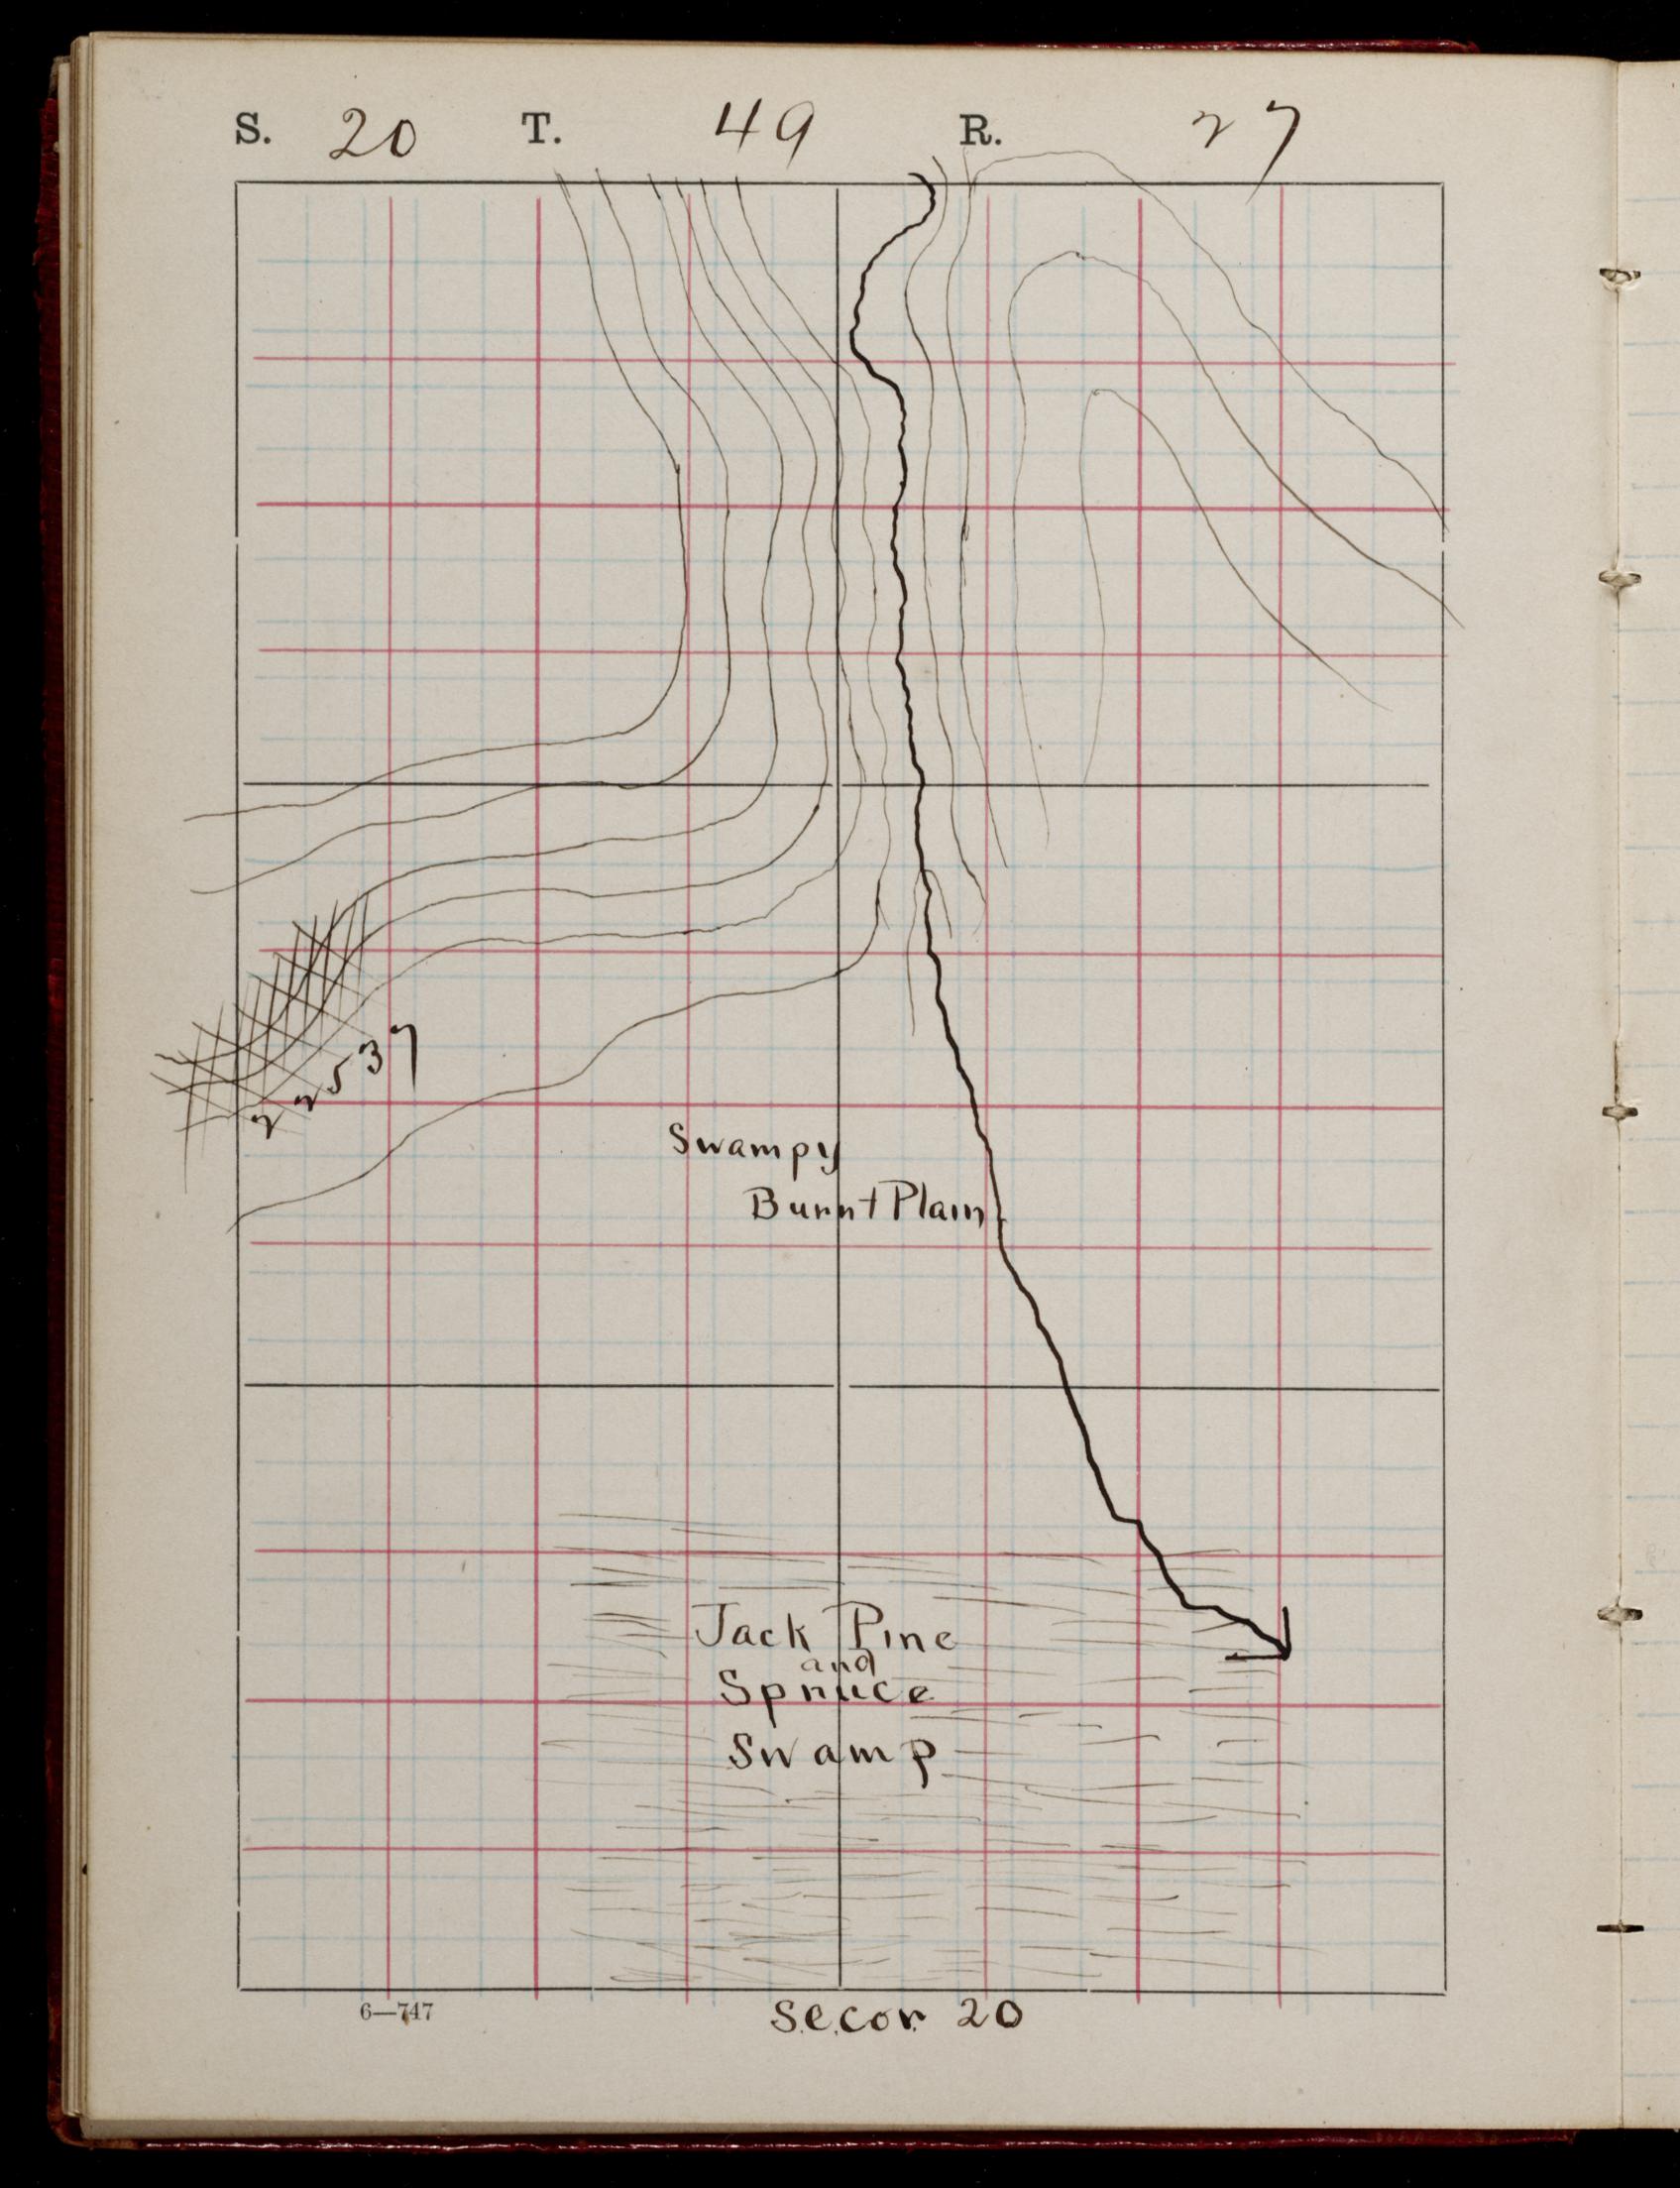 S. 20 T. 49 R. 27
22537
Swampy
Burnt Plain
Jack Pine
and
Spruce
Swamp
6—747
S.E. cor. 20